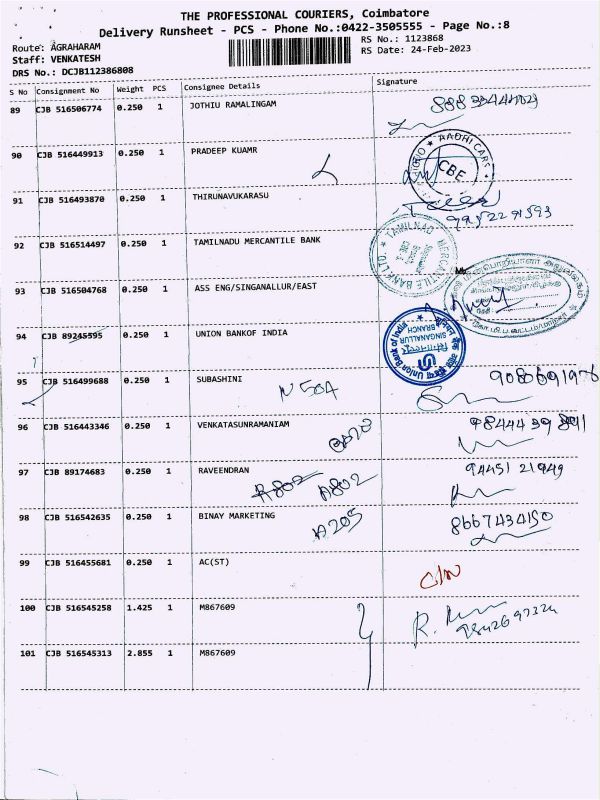 THE PROFESSIONAL COURIERS, Coimbatore
Delivery Runsheet - PCS - Phone No.:0422-3505555 - Page No.:8
Route: AGRAHARAM
RS No.: 1123868
Staff: VENKATESH
RS Date: 24-Feb-2023
DRS No.: DCJB112386808
S No Consignment No Weight PCS Consignee Details Signature
89 CJB 516506774 0.250 1 JOTHIU RAMALINGAM
90 CJB 516449913 0.250 1 PRADEEP KUAMR
AADHI CARS
CBE
91 CJB 516493870 0.250 1 THIRUNAVUKARASU
92 CJB 516514497 0.250 1 TAMILNADU MERCANTILE BANK
TAMILNAD MERCANTILE BANK LTD.
93 CJB 516504768 0.250 1 ASS ENG/SINGANALLUR/EAST
94 CJB 89245595 0.250 1 UNION BANKOF INDIA
Union Bank of India
SINGANALLUR
BRANCH
95 CJB 516499688 0.250 1 SUBASHINI
96 CJB 516443346 0.250 1 VENKATASUNRAMANIAM
97 CJB 89174683 0.250 1 RAVEENDRAN A802 A802 94451 21949
98 CJB 516542635 0.250 1 BINAY MARKETING A205 8667434150
99 CJB 516455681 0.250 1 AC(ST)
100 CJB 516545258 1.425 1 M867609
101 CJB 516545313 2.855 1 M867609